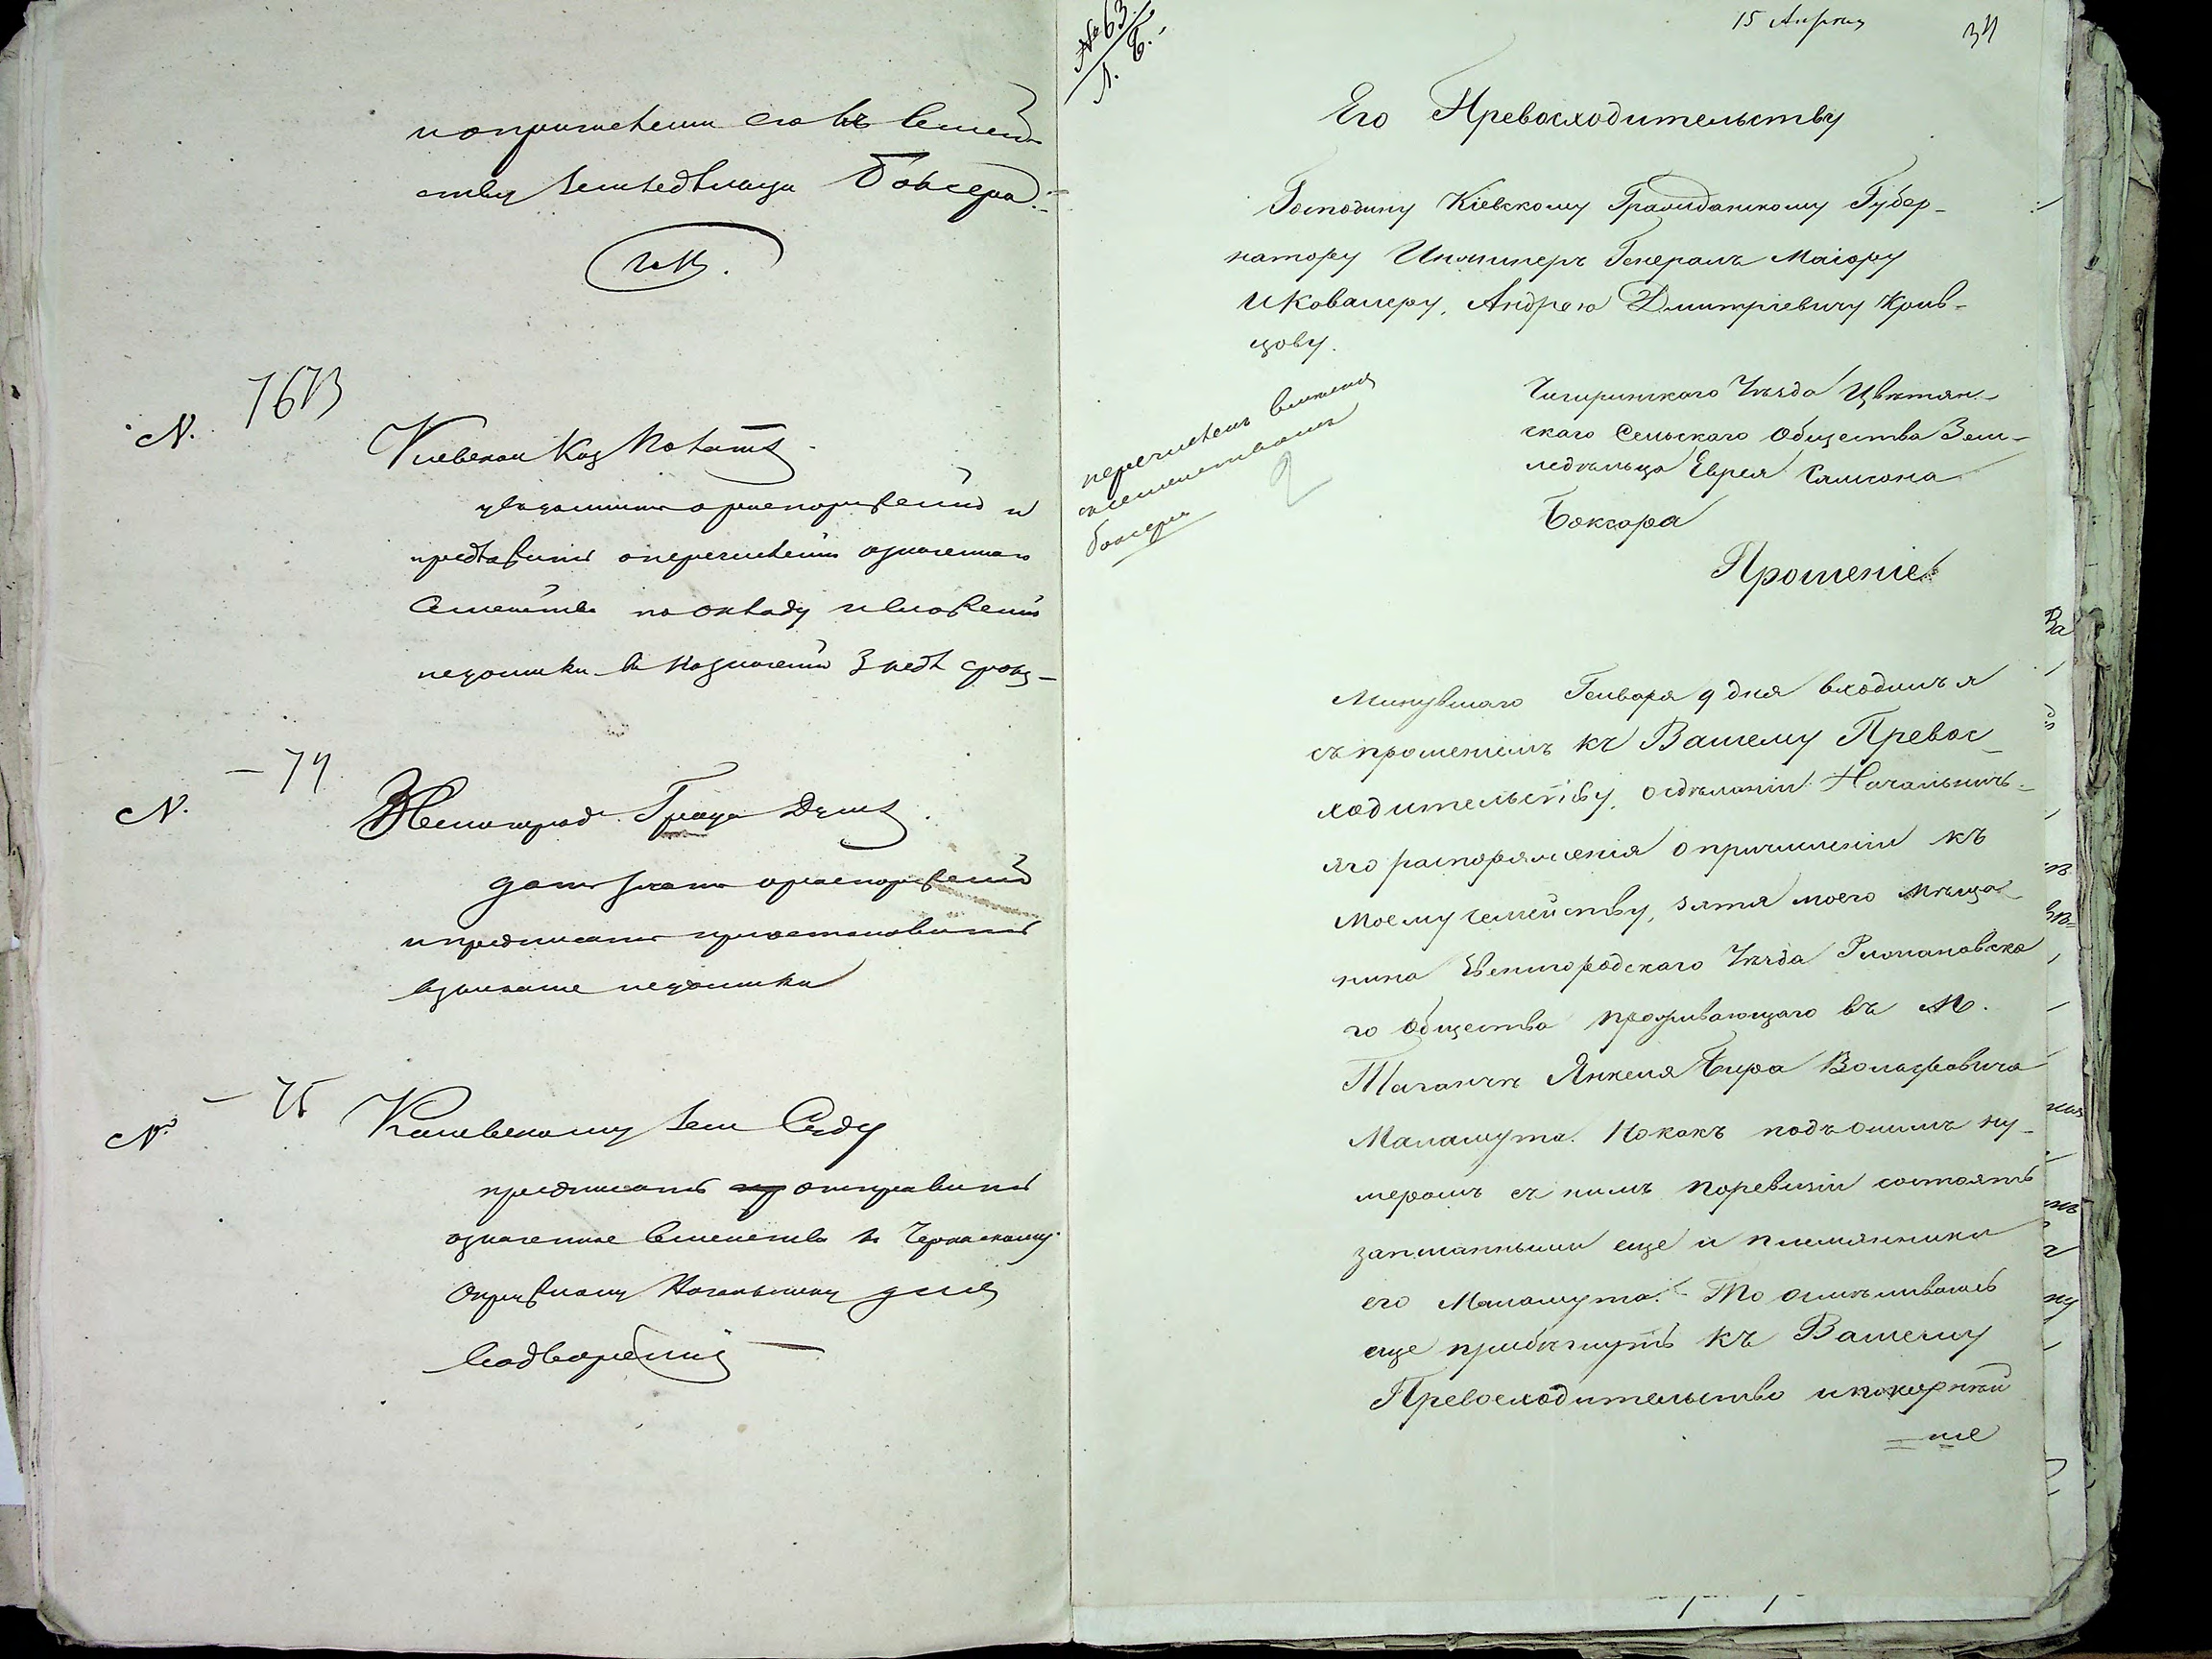 и опричислении его къ семей
ству земледельца Боксера.
N. 7673
Киевской Каз Палате
уведомить о распоряжении и
представить о перечислении означеннаго
Семейства по окладу и сложении
недоимки в назначенный 3 нед срок
N. — 74
Звенигород. Градс Думе
дать знать о распоряжении
и предписать приостановить
взыскание недоимки
N. — 75
Каневскому Зем Суду
предписать отправить
означенное семейство к Черкаскому
Окружному Начальнику для
водворения —
№ 63
15 Апреля
34
Его Превосходительству
Господину Кіевскому Гражданскому Губер-
натору Инжинеръ Генералъ Маіору
и Ковалеру, Андрею Дмитріевичу Крив-
цову.
перечисленъ
съ семействомъ
Боксера
2
Чигиринского Уѣзда Цвѣтян-
скаго Сельскаго Общества Зем-
ледѣльца Еврея Самсона
Боксора
Прошеніе
Минувшаго Генваря 9 дня входилъ я
съ прошеніемъ къ Вашему Превос_
ходительству, о сдѣланіи Начальничь_
яго распоряженія о причисленіи къ
моему семейству, зятя моего мѣща_
нина Звенигородского Уѣзда
го Общества проживающаго въ М.
Таганчѣ Янкеля Бера Вольфовича
Маламута. Но какъ подъ однимъ ну_
меромъ съ нимъ поревизіи состоятъ
записанными еще и племянники
его Маламута. То осмѣливаюсь
еще прибѣгнуть къ Вашему
Превосходительство и покорнѣй
ше